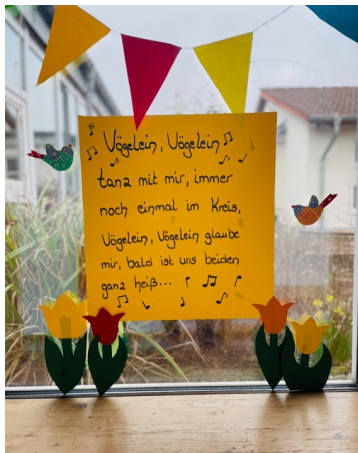 Vögelein, Vögelein
tanz mit mir, immer
noch einmal im Kreis,
Vögelein, Vögelein glaube
mir, bald ist uns beiden
ganz heiß...